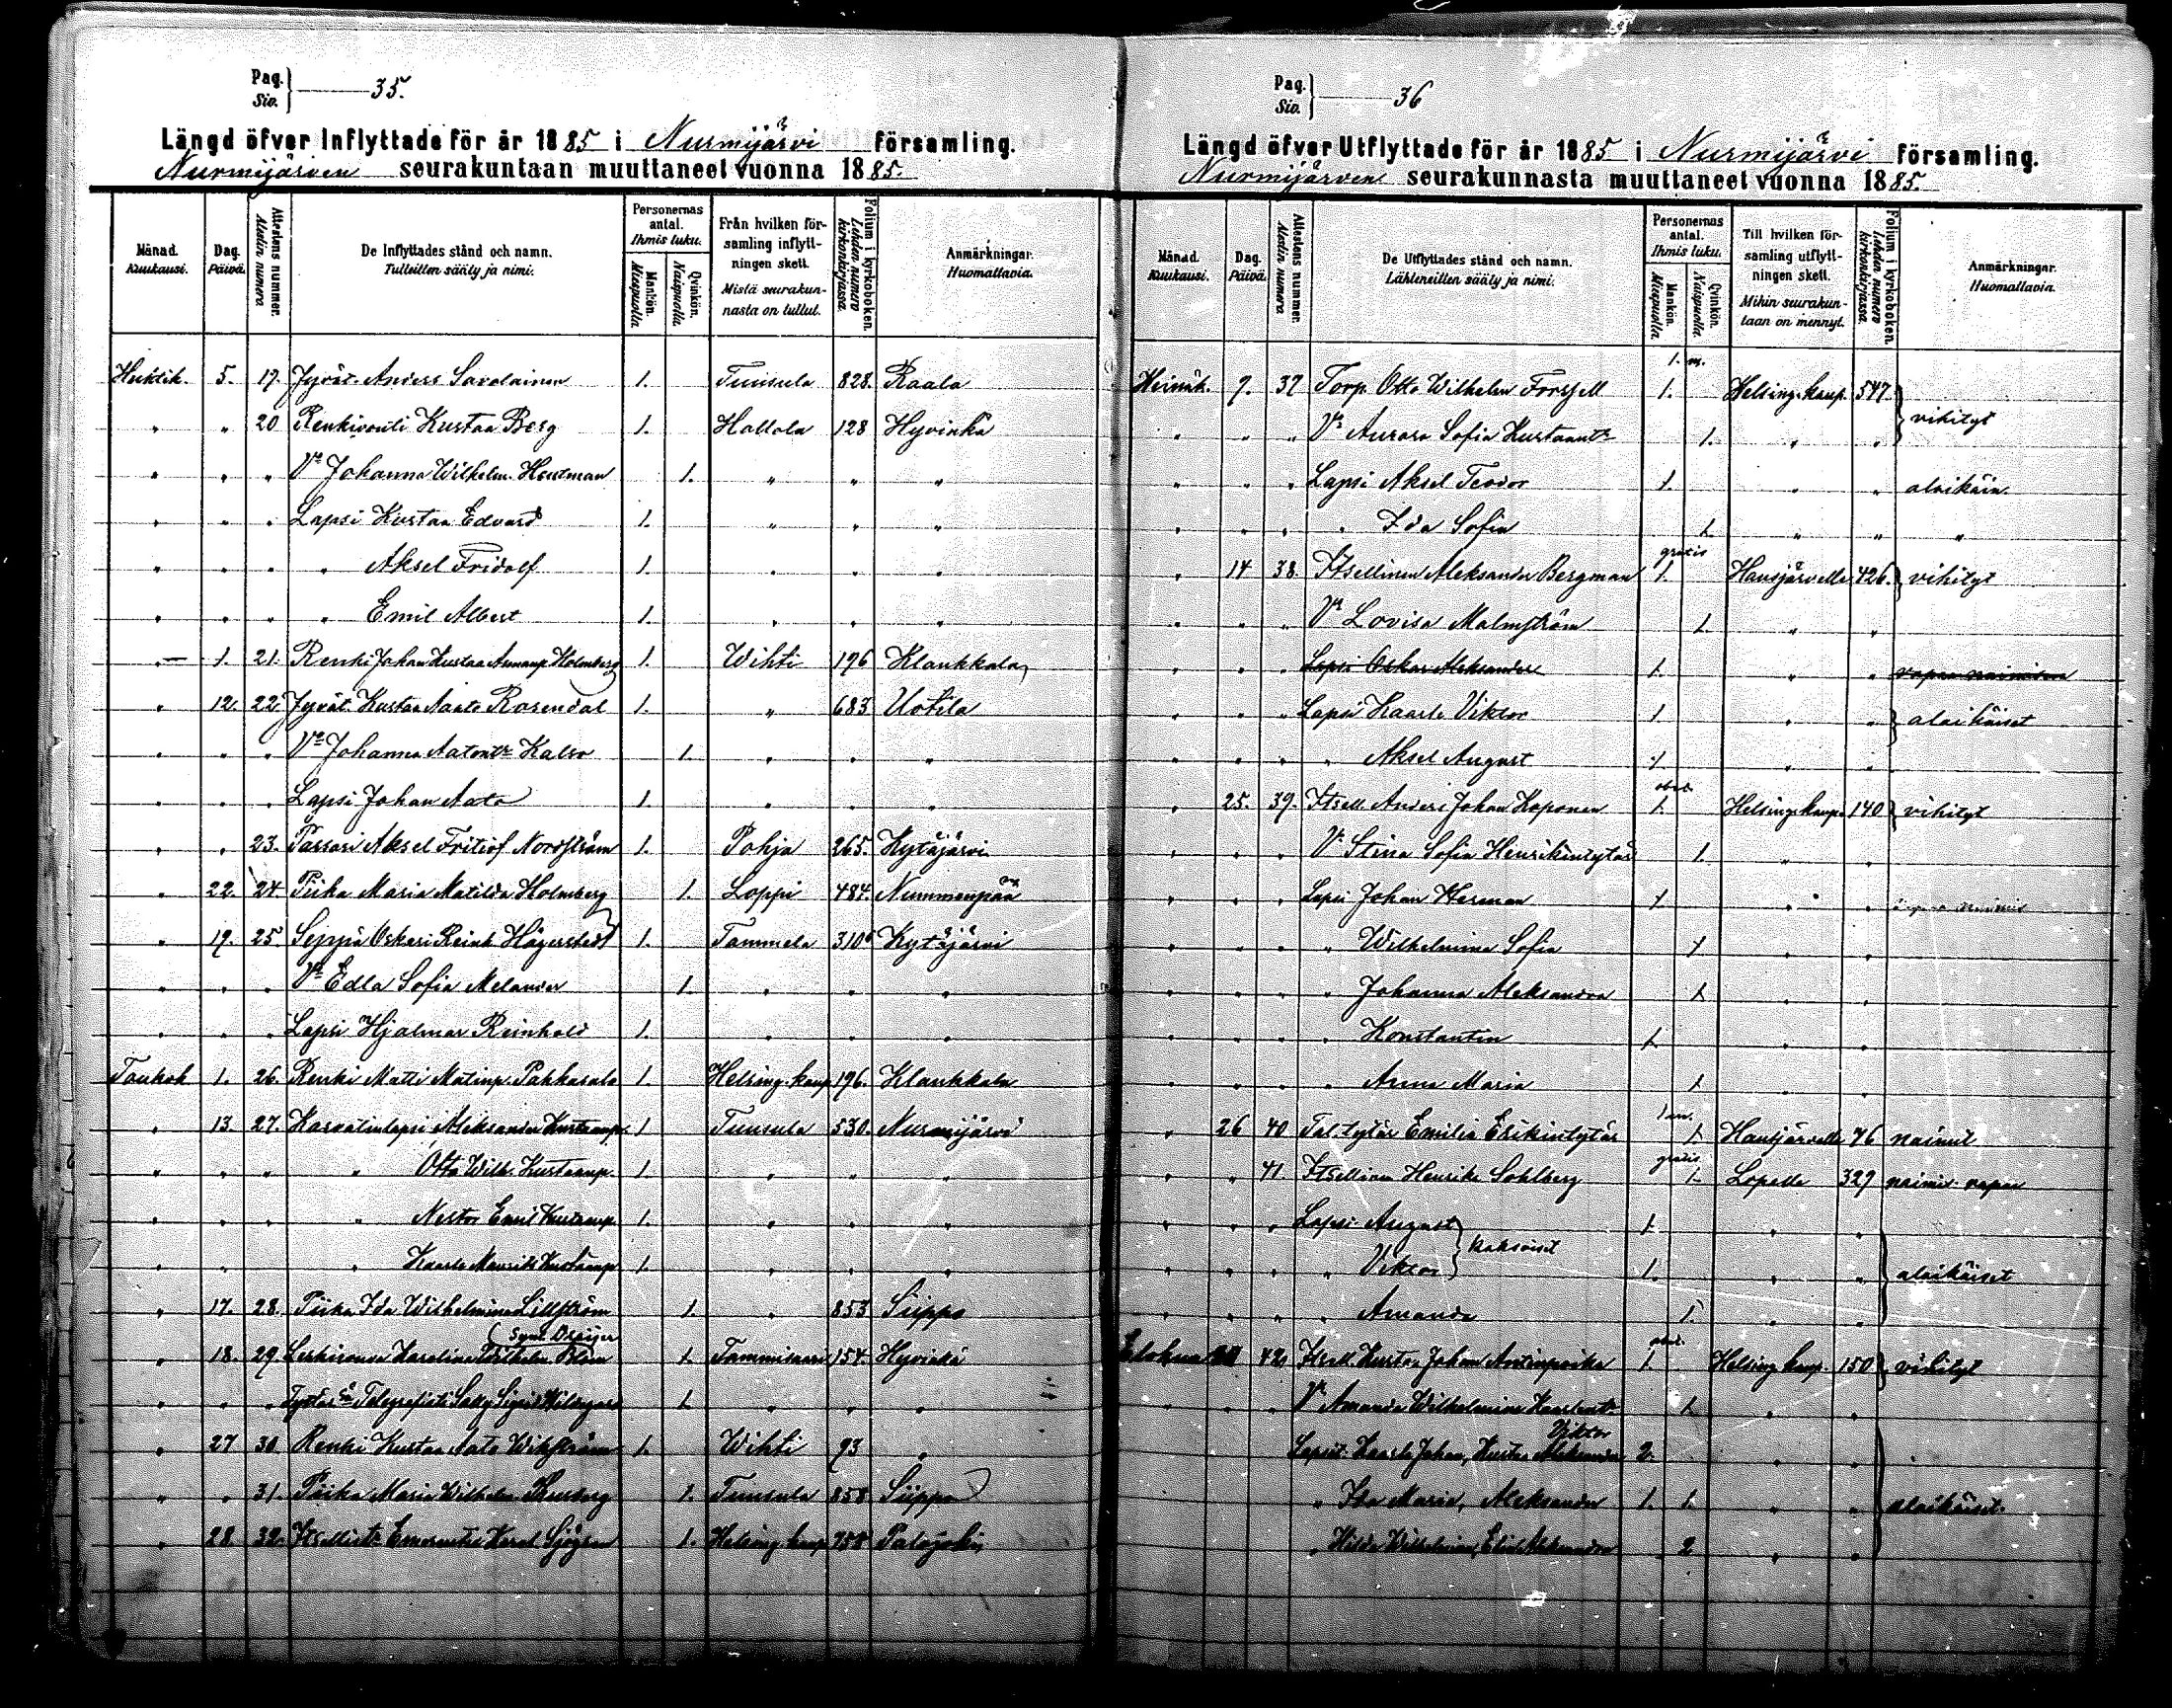 Pag. Siv. 35.
Längd öfver Inflyttade för år 1885 i Nurmijärvi församling.
Nurmijärven seurakuntaan muuttaneet vuonna 1885.
Månad. Kuukausi. Dag. Päivä. Attestens nummer. Alestin numero De Inflyttades stånd och namn. Tulleitten sääty ja nimi. Personernas antal. Ihmis luku. Mankön. Miespuolia Qvinkön. Naispuolia Från hvilken församling inflyttningen skett. Mistä seurakunnasta on tullut. Folium i kyrkoboken. Lehden numero kirkonkirjassa. Anmärkningar. Huomattavia.
Huhtik. 5. 19. Jyvät. Anders Savolainen 1. Tuusula 828. Raala
" " 20 Renkivouti Kustaa Berg 1. Hollola 128 Hyvinkä
" " " Vo Johanna Wilhelm. Hendman 1. " " "
" " " Lapsi Kustaa Edvard 1. " " "
" " " " Aksel Fridolf 1. " " "
" " " " Emil Albert 1. " " "
" 1. 21. Renki Johan Kustaa Holmberg 1. Wihti 196 Klaukkala
" 12. 22. Jyvät Kustaa Aato Rosendal 1. " 683 Uotila
" " " Vo Johanna Aatontr Kalso 1. " " "
" " " Lapsi Johan Aato 1. " " "
" " 23. Passari Aksel Fritiof Nordström 1. Pohja 265. Kytäjärvi
" 22. 24. Piika Maria Matilda Holmberg 1. Loppi 484. Nummenpää
" 19. 25 Seppä Oskari Reinh Hägerstedt 1. Tammela 310 Kytäjärvi
" " " Vo Edla Sofia Melander 1. " " "
" " " Lapsi Hjalmar Reinhold 1. " " "
Toukok 1. 26. Renki Matti Matinp. Pakkasala 1. Helsing. kaup 196. Klaukkala
" 13. 27. Kasvatinlapsi Aleksander Kustaanp. 1. Tuusula 530. Nurmijärvi
" " " " Otto Wilh. Kustaanp. 1. " " "
" " " " Nestor Emil Kustaanp. 1. " " "
" " " " Kaarlo Maurits Kustaanp 1. " " "
" 17. 28. Piika Ida Wilhelmina Lillström 1. " 853 Siippo
" 18. 29. Leskirouva Karolina Wilhelm. Blom 1. Tammisaari 154. Hyvinkä
" " " Tytär Telegrafisti Selly Sigrid Hildegard 1. " " "
" 27 30. Renki Kustaa Aato Wikström 1. Wihti 93 "
" " 31. Piika Maria Wilhelm. 1. Tuusula 858 Siippo
" 28. 32. Sjögren 1. Helsing. kaup 758 Palojoki
Pag. Siv. 36
Längd öfver Utflyttade för år 1885 i Nurmijärvi församling.
Nurmijärven seurakunnasta muuttaneet vuonna 1885.
Månad. Kuukausi. Dag. Päivä. Attestens nummer. Alestin numero De Utflyttades stånd och namn. Lähteneitten sääty ja nimi. Personernas antal. Ihmis luku. Mankön. Miespuolia Qvinkön. Naispuolia Till hvilken församling utflyttningen skett. Mihin seurakuntaan on mennyt. Folium i kyrkoboken. Lehden numero kirkonkirjassa. Anmärkningar. Huomattavia.
1. m.
Heinäk. 9. 37 Torp. Otto Wilhelm Forssell 1. Helsing. kaup. 547 vihityt
" " " Vo Aurora Sofia Kustaantr 1. " "
" " " Lapsi Aksel Teodor 1. " " alaikäin.
" " " " Ida Sofia 1. " " "
gratis
" 14 38. Itsellinen Aleksander Bergman 1. Hausjärvelle 426. vihityt
" " " Vo Lovisa Malmström 1. " "
" " " Lapsi Oskar Aleksander 1. " " vapaa naimiseen
" " " Lapsi Kaarlo Viktor 1 " " alaikäiset
" " " " Aksel August 1 " "
" 25. 39. Itsell. Anders Johan Koponen 1. Helsing. kaup. 140 vihityt
" " " Vo Stina Sofia Henrikintytär 1. " "
" " " Lapsi Johan Herman 1 " "
" " " " Wilhelmina Sofia 1 " "
" " " " Johanna Aleksandra 1 " "
" " " " Konstantin 1. " "
" " " " Anna Maria 1 " "
1 m.
" 26 40 Tal. tytär Emilia Erikintytär 1. Hausjärvelle 76 naimat
gratis
" " 41. Itsellinen Henrika Sohlberg 1. Lopelle 329 naimis. vapaa
" " " Lapsi August 1. " "
kaksoiset
" " " " Viktor 1. " " alaikäiset
" " " " Amanda 1. " "
Elokuu 42. Itsell. Kustaa Johan Antinpoika 1. Helsing. kaup. 150 vihityt
" " " Vo Amanda Wilhelmina 1. " "
Viktor
Lapset Kaarlo Johan, Kustaa Aleksander 2. " "
" Ida Maria, Aleksander 1. 1. " " alaikäiset.
" Hilda Wilhelmina, Aleksandra 2 " "